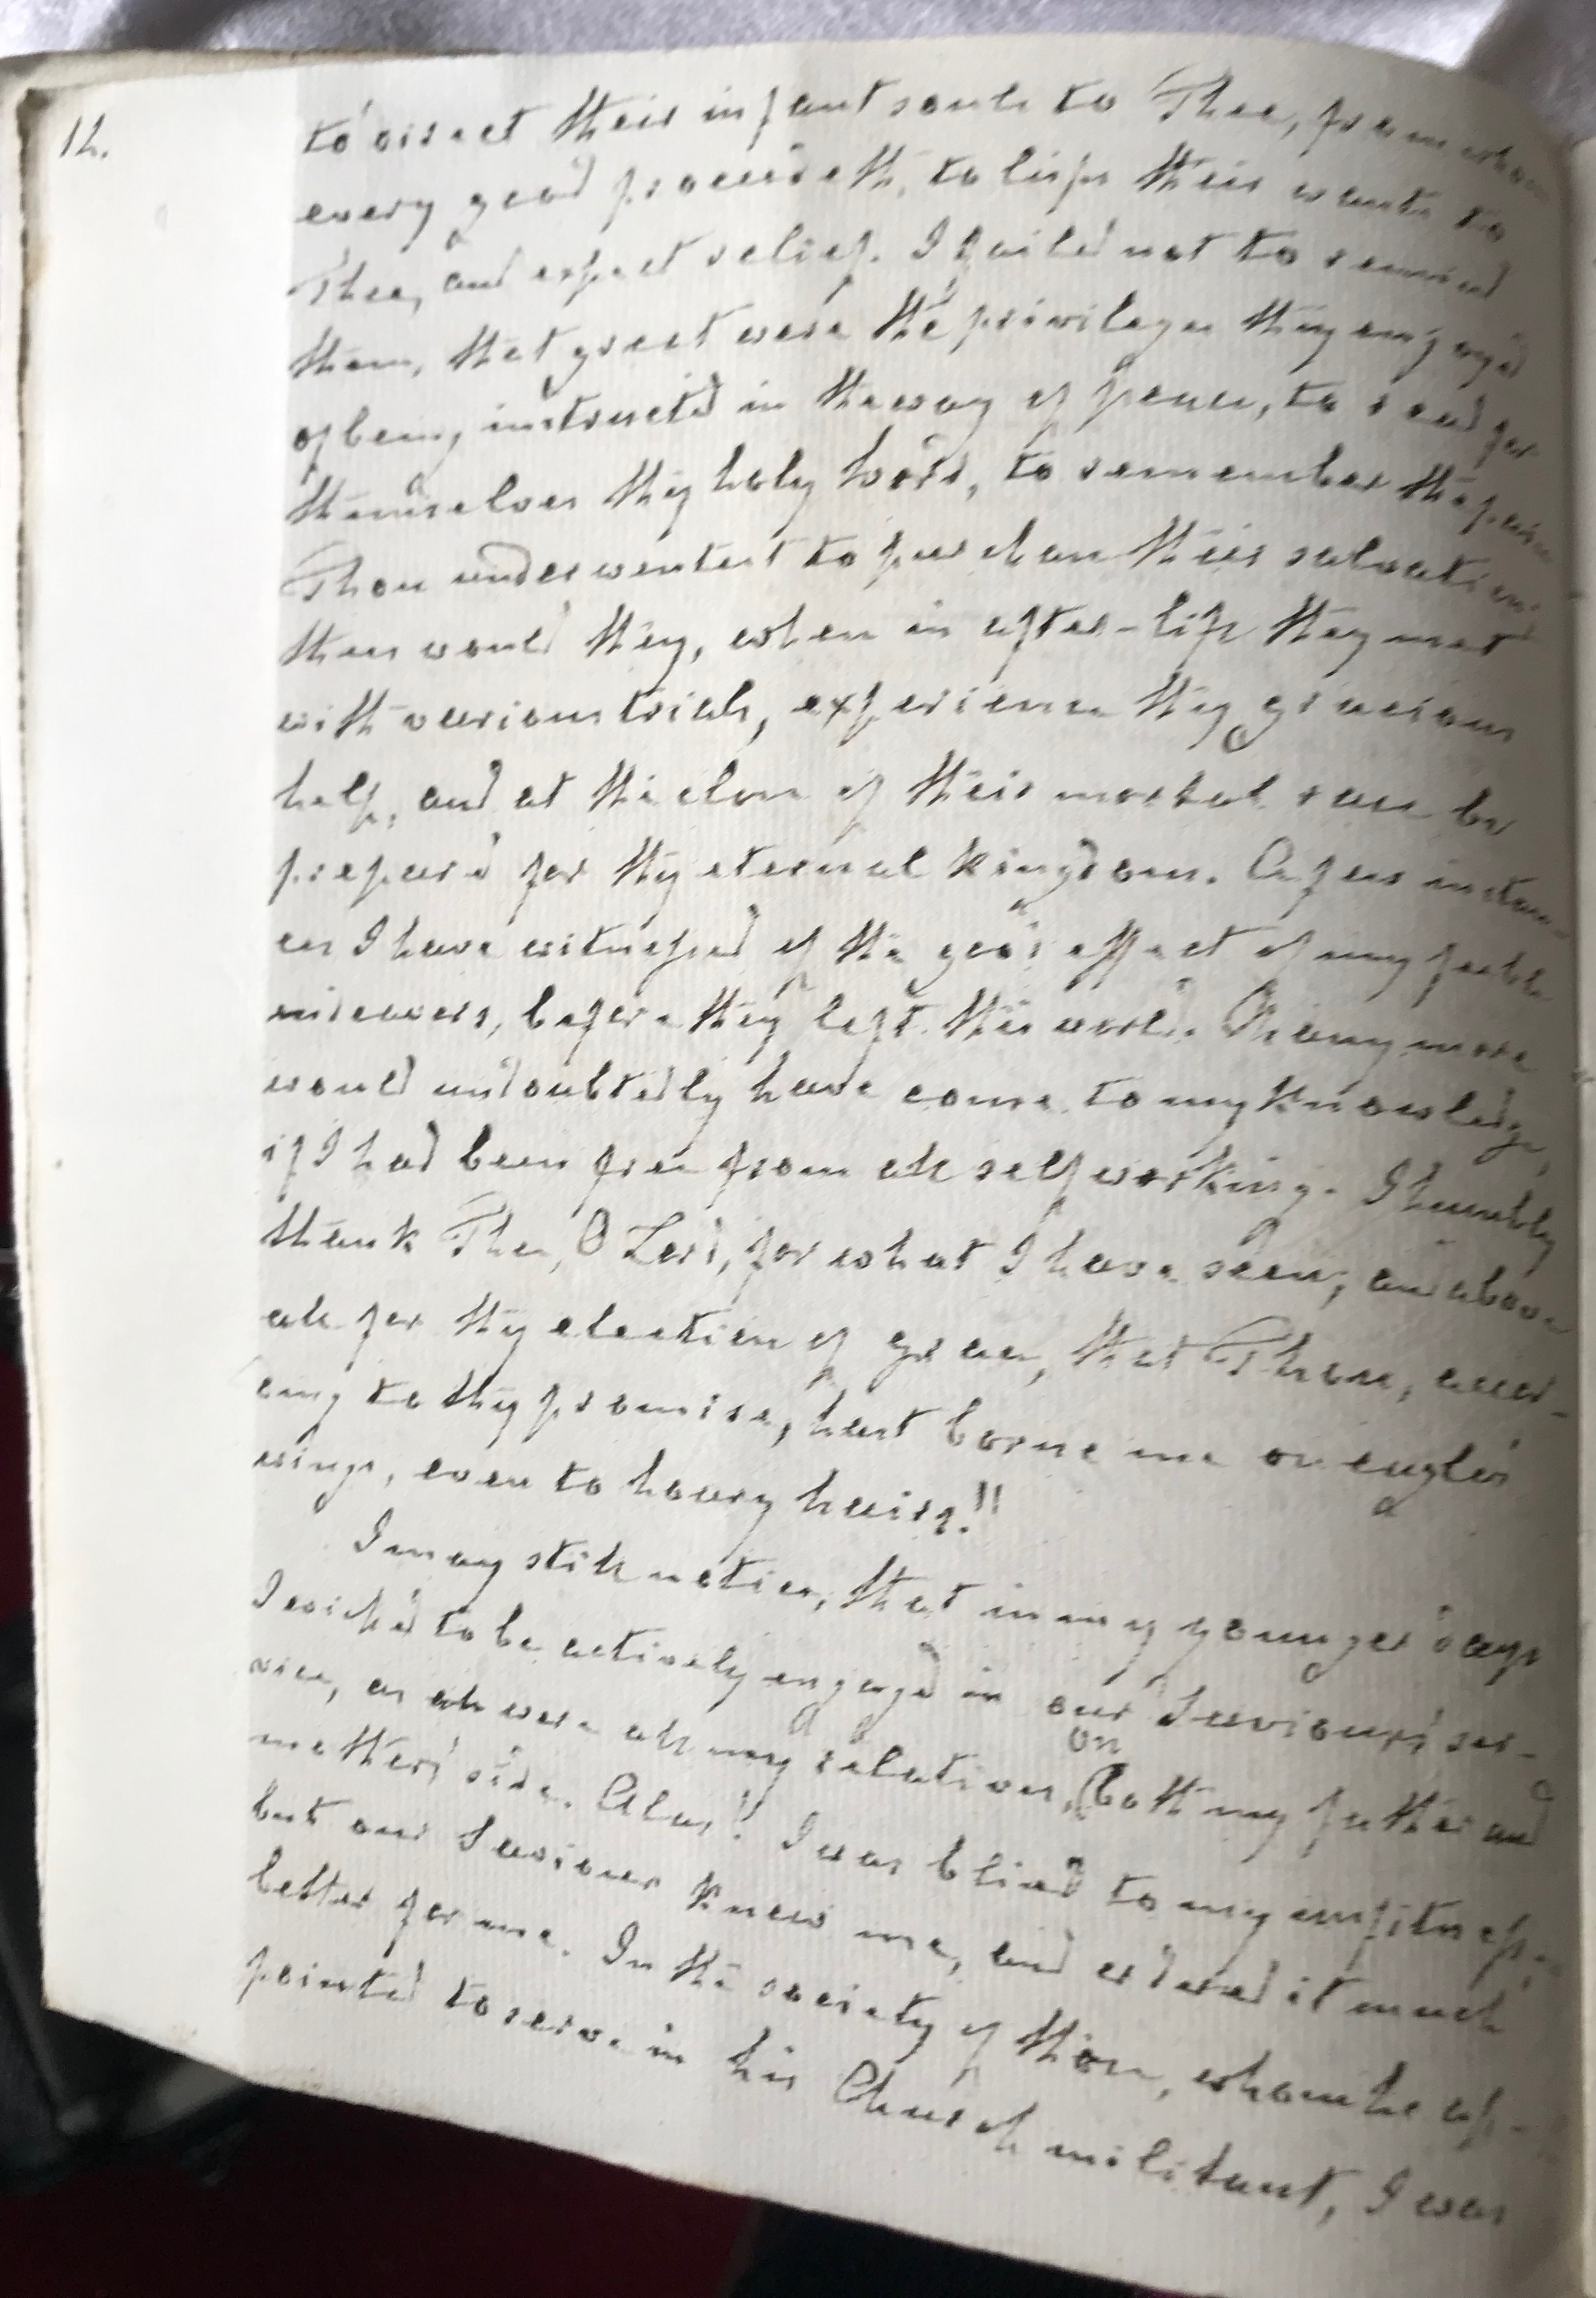 12.
to direct their infant souls to Thee, from whom
every good proceedeth, to lisp their wants to
Thee, and expect relief. I fail'd not to remind
them, that great were the privileges they enjoy'd
of being instructed in the way of peace, to read for
themselves thy holy word, to remember the pains
Thou underwentest to purchase their salvation;
then would they, when in after-life they met
with various trials, experience thy gracious
help, and at the close of their mortal race be
prepar'd for thy eternal kingdom. A few instan-
ces I have witnessed of the good effect of my feeble
endeavors, before they left this world. Many more
would undoubtedly have come to my knowledge,
if I had been free from all selfworking. I humbly
thank Thee, O Lord, for what I have seen, and above
all for thy election of grace, that Thou, accor-
ding to thy promise, hast borne me on eagles'
wings, even to hoary hairs!!
I may still notice, that in my younger days
I wish'd to be actively engag'd in our Saviour's ser-
vice, as all were all my relations, on both my father and
mother's side. Alas! I was blind to my unfitness;
but our Saviour knew me, and order'd it much
better for me. In the society of those, whom he ap-
pointed to serve in his Church militant, I was